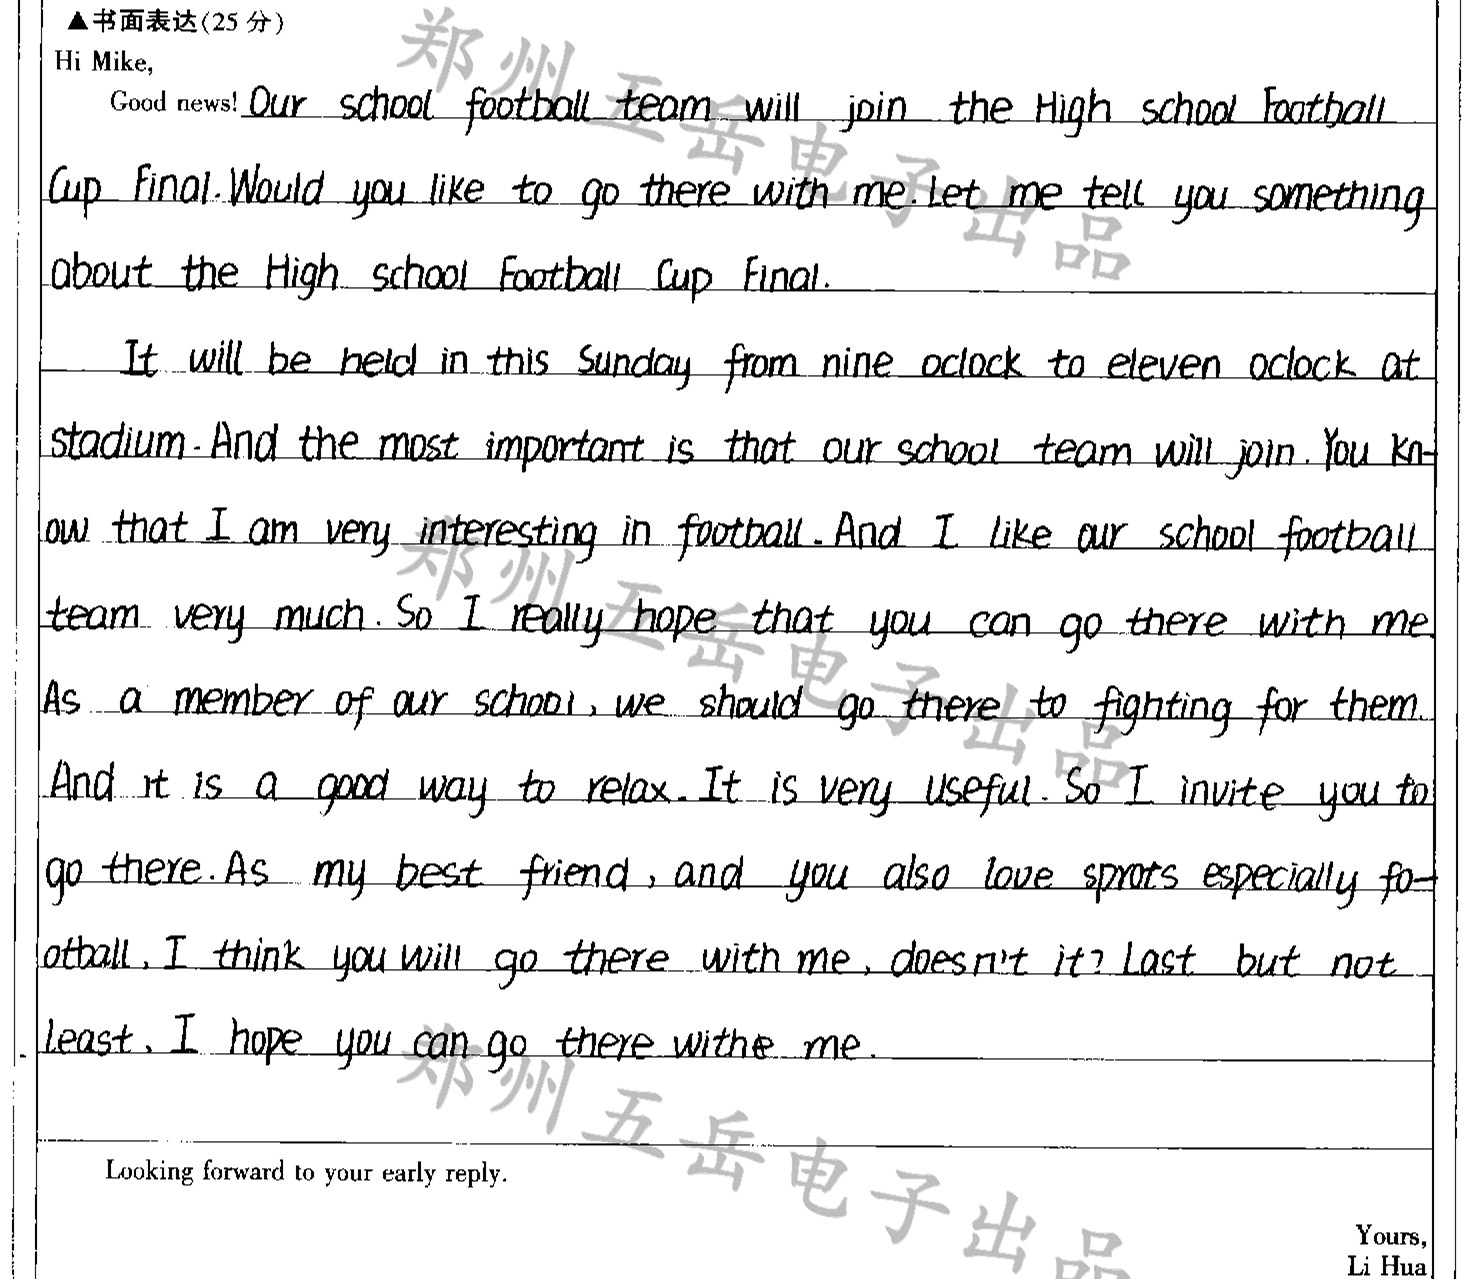 ▲书面表达(25 分)
Hi Mike,
Good news! Our school football team will join the High school Football
Cup Final. Would you like to go there with me. Let me tell you something
about the High school Football Cup Final.
It will be held in this Sunday from nine oclock to eleven oclock at
stadium. And the most important is that our school team will join. You kn-
ow that I am very interesting in football. And I like our school football
team very much. So I really hope that you can go there with me.
As a member of our school, we should go there to fighting for them.
And it is a good way to relax. It is very useful. So I invite you to
go there. As my best friend, and you also love sprots especially fo-
otball, I think you will go there with me, doesn't it? Last but not
least, I hope you can go there withe me.
Looking forward to your early reply.
Yours,
Li Hua
郑州五岳电子出品
郑州五岳电子出品
郑州五岳电子出品